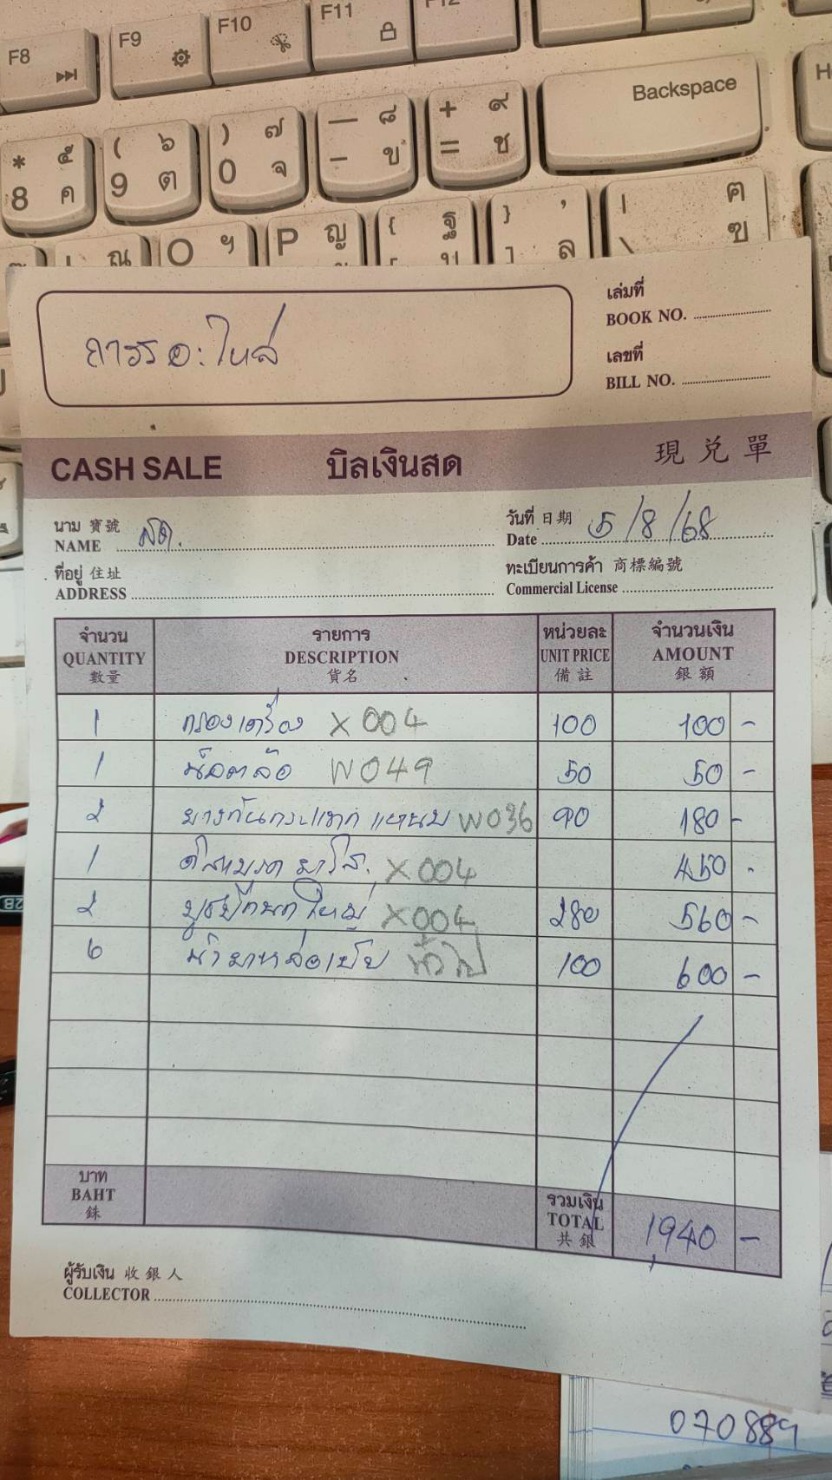 F8
F9
F10
F11
F12
* ๕
8 ค
( ๖
9 ต
) ๗
0 จ
— ๘
- ข
+ ๙
= ช
Backspace
ณ
O ฯ
P ญ
{ ฐ
} ,
ล
| ฅ
\ ฃ
อะไหล่
เล่มที่
BOOK NO.
เลขที่
BILL NO.
CASH SALE บิลเงินสด 現兑單
นาม 寳號
NAME สด.
วันที่ 日期
Date 5/8/68
ที่อยู่ 住址
ADDRESS
ทะเบียนการค้า 商標編號
Commercial License
จำนวน รายการ หน่วยละ จำนวนเงิน
QUANTITY DESCRIPTION UNIT PRICE AMOUNT
數量 貨名 備註 銀額
1 กรองเครื่อง X004 100 100 -
1 น็อตล้อ W049 50 50 -
2 ยางกันกระแทก แหนบ W036 90 180 -
1 X004 450 -
2 ใหญ่ X004 280 560 -
6 น้ำยาหล่อเย็น ทั่วไป 100 600 -
บาท
BAHT
銖
รวมเงิน
TOTAL 1940 -
共銀
ผู้รับเงิน 收銀人
COLLECTOR
070889